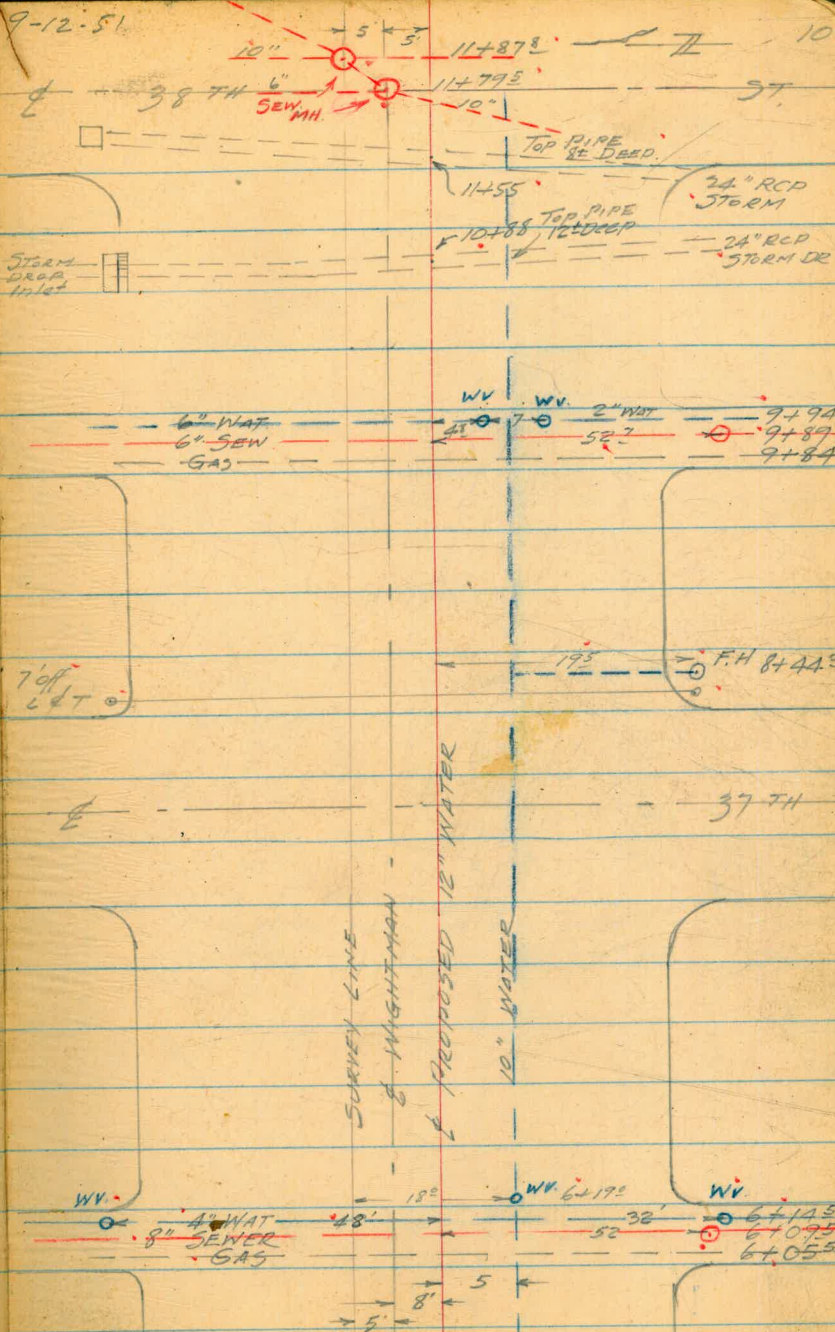 9-12-51
10
5' 5'
10" 11+87⁸
℄ 38 TH 6" 11+79⁵ ST.
SEW. MH. 10"
TOP PIPE
8± DEEP.
11+55
24" RCP
STORM
10+88 TOP PIPE
12± DEEP
24" RCP
STORM DR
STORM
DROP
Inlet
WV. WV.
6" WAT 7 2" WAT 9+94
6" SEW 52⁷ 9+89
GAS 9+84
19⁵ F.H 8+44⁵
7' off
℄ 37 TH
SURVEY LINE
℄ WIGHTMAN
℄ PROPOSED 12" WATER
10" WATER
18⁰ WV. 6+19⁰
WV. WV.
4" WAT 48' 32' 6+14⁵
8" SEWER 52 6+09⁵
GAS 6+05⁵
5
8'
5'